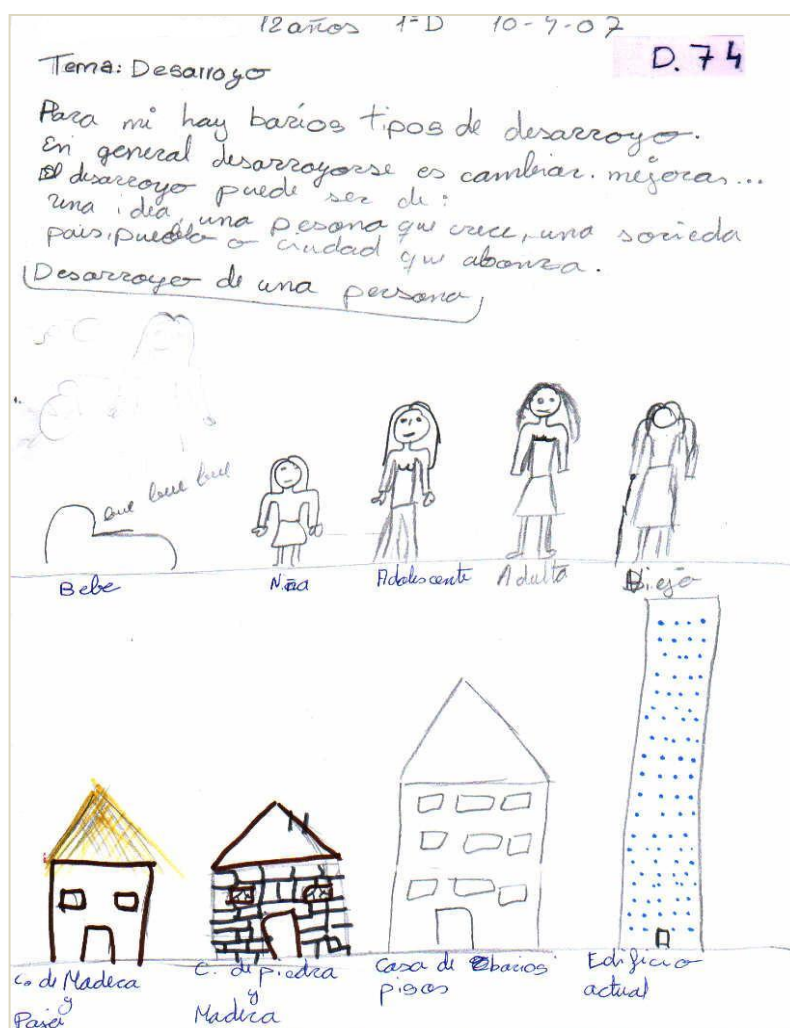 12 años 1º D 10-4-07
D. 74
Tema: Desarroyo
Para mi hay barios tipos de desarroyo.
En general desarroyarse es cambiar. mejoras...
El desarroyo puede ser de:
una idea, una pesona que crece, una socieda
pais, pueblo o ciudad que abanza.
Desarroyo de una persona
bue bue
Bebe
Niña
Adolescente
Adulta
Biejo
C. de Madera
y
Paja
C. de piedra
y
Madera
Casa de barios
pisos
Edificio
actual